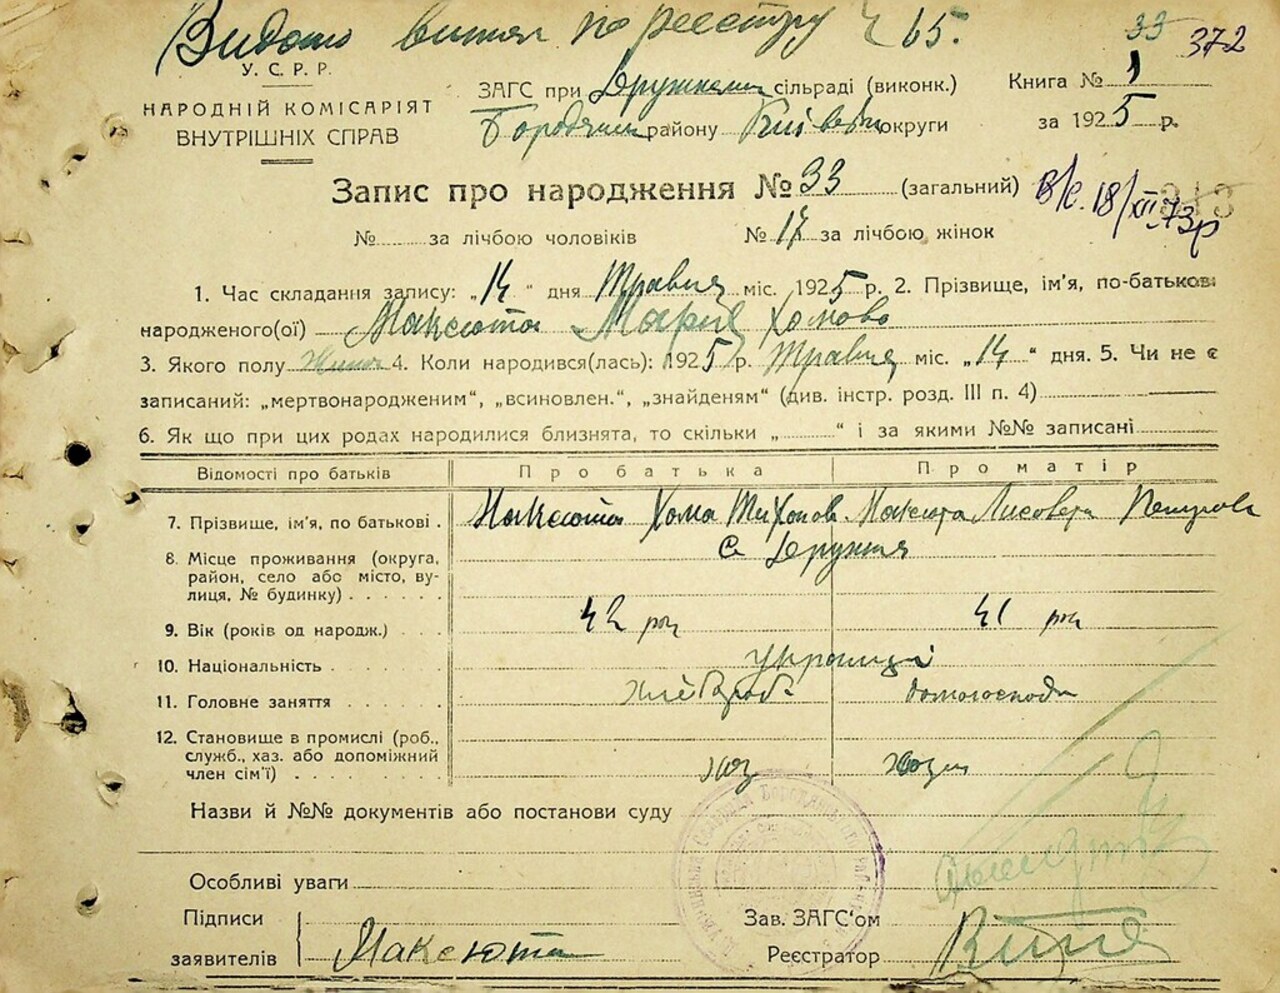 Видано витяг по реєстру № 65.
33 372
У. С. Р. Р.
НАРОДНІЙ КОМІСАРІЯТ
ВНУТРІШНІХ СПРАВ
ЗАГС при Дружнянській сільраді (виконк.)
Бородянськ району Київськ округи
Книга № 1
за 1925 р.
Запис про народження № 33 (загальний)
В/с. 18/XII.73р
№ за лічбою чоловіків № 17 за лічбою жінок
1. Час складання запису: „14" дня Травня міс. 1925 р. 2. Прізвище, ім'я, по-батькові
народженого(ої) Максюта Марія Хомово
3. Якого полу жіноч 4. Коли народився(лась): 1925 р. Травня міс. „14" дня. 5. Чи не є
записаний: „мертвонародженим", „всиновлен.", „знайденям" (див. інстр. розд. III п. 4)
6. Як що при цих родах народилися близнята, то скільки „ " і за якими №№ записані
Відомості про батьків Про батька Про матір
7. Прізвище, ім'я, по батькові . Максюта Хома Тихонов. Максюта Лисовета Петрова
8. Місце проживання (округа, с Дружня
район, село або місто, ву-
лиця, № будинку) . . . . . .
9. Вік (років од народж.) . . . 42 рок 41 рок
10. Національність . . . . . . українці
11. Головне заняття . . . . . . хлібороб домогосподи
12. Становище в промислі (роб.,
служб., хаз. або допоміжний
член сім'ї) . . . . . . . . хоз хозяй
Назви й №№ документів або постанови суду
Особливі уваги
Підписи
заявителів Максюта
Зав. ЗАГС'ом
Реєстратор